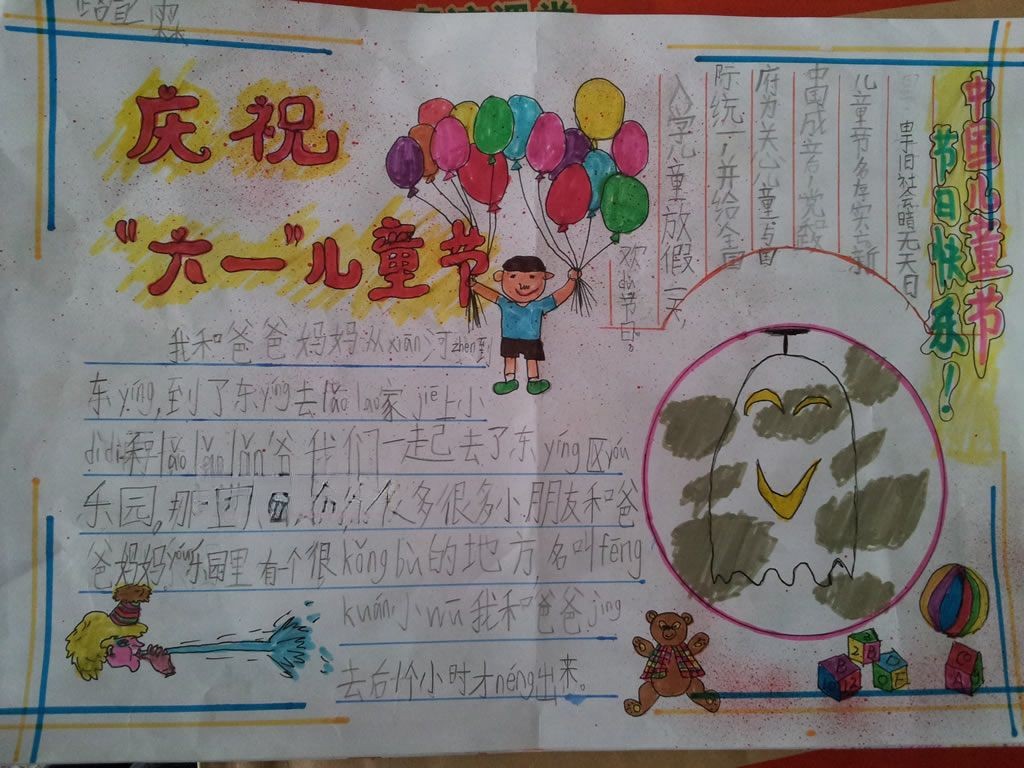 庆祝
“六一”儿童节
我和爸爸妈妈从xiān河zhèn到
东yíng,到了东yíng去lǎo lao家jiē上小
didi和lǎo lao lǎo爷我们一起去了东yíng区yóu
乐园,那里 很多很多小朋友和爸
爸妈妈yóu乐园里有一个很kǒng bù的地方,名叫fēng
kuáng小wū我和爸爸jìng
去后1个小时才néng出来。
中国儿童节
节日快乐!
旧社会暗无天日
儿童节多存实新
中国成立党政
府为关心儿童与国
际统一并给全国
入学儿童放假一天,
欢dù节日。